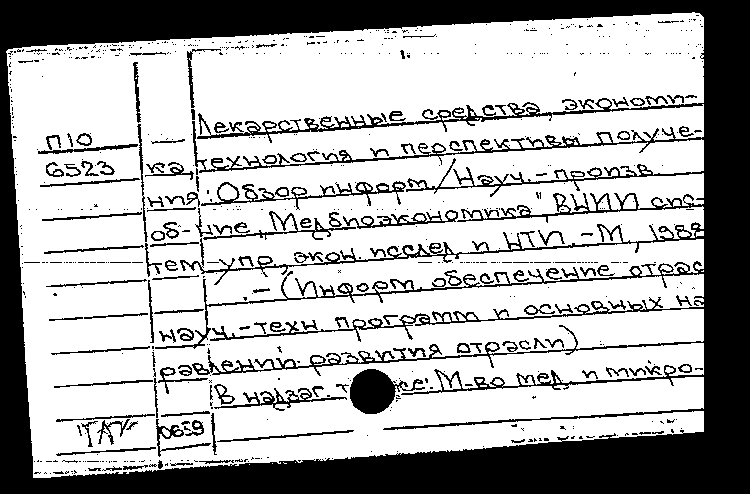 Лекарственные средства, экономи-
П10
6523 ка, технология и перспективы получе-
ния: Обзор информ. / Науч.-произв.
об-ние „Медбиоэкономика", ВНИИ сис-
тем упр., экон. исслед. и НТИ. -М., 1988
. - (Информ. обеспечение отрас
науч.-техн. программ и основных на
равлений развития отрасли)
В надзаг. : М-во мед. и микро-
0659